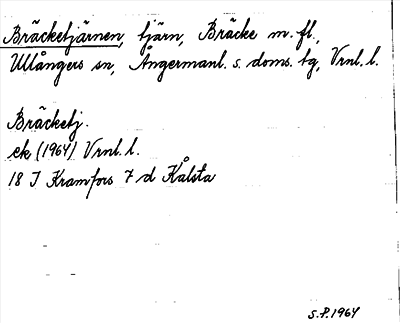 Bräcketjärnen, tjärn, Bräcke m.fl.,
Ullångers sn, Ångermanl. s. doms. tg, Vrnl. l.
Bräcketj.
ek (1964) Vrnl. l.
18 I Kramfors 7 d Kålsta
S.P. 1964